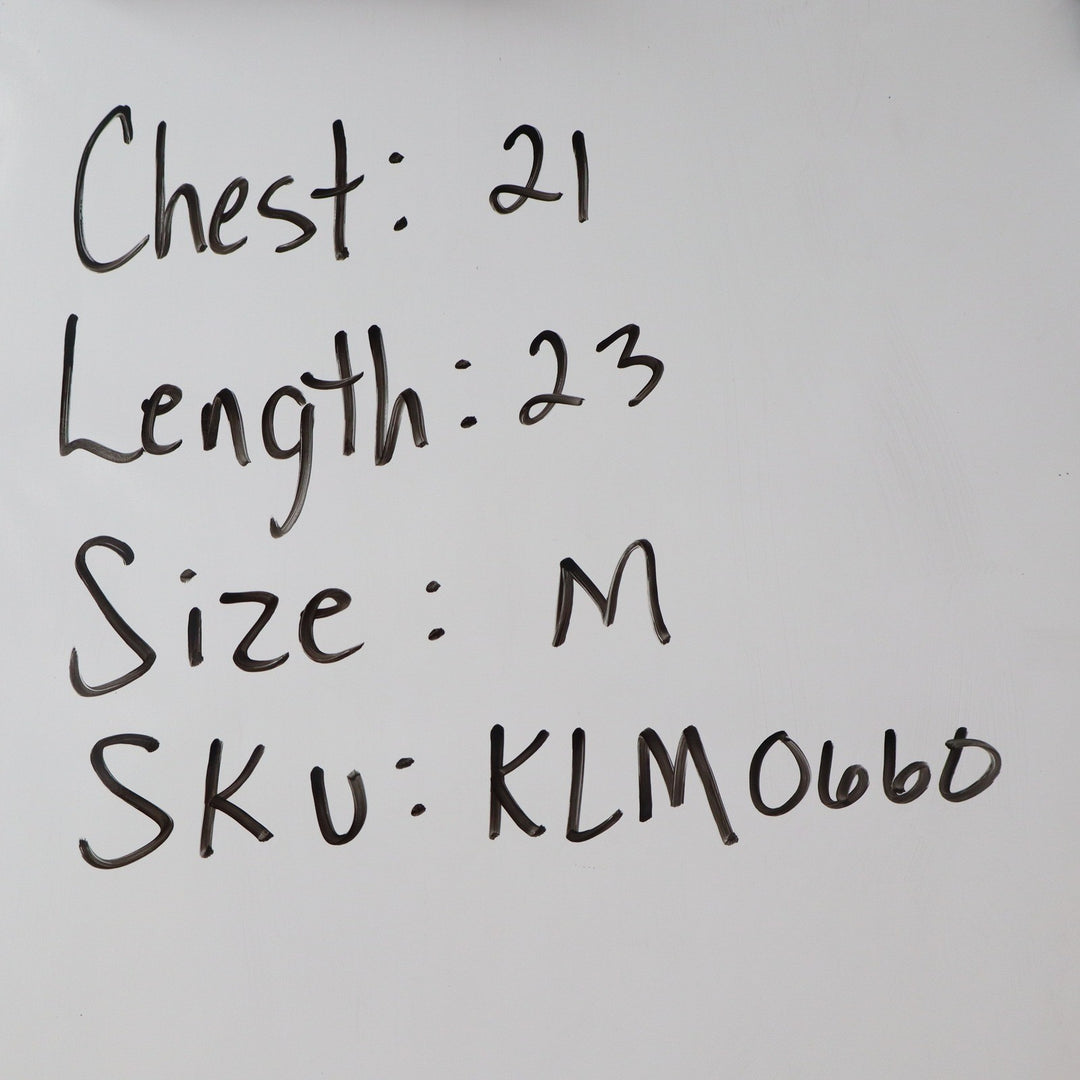 Chest: 21
Length: 23
Size: M
SKU: KLM0660